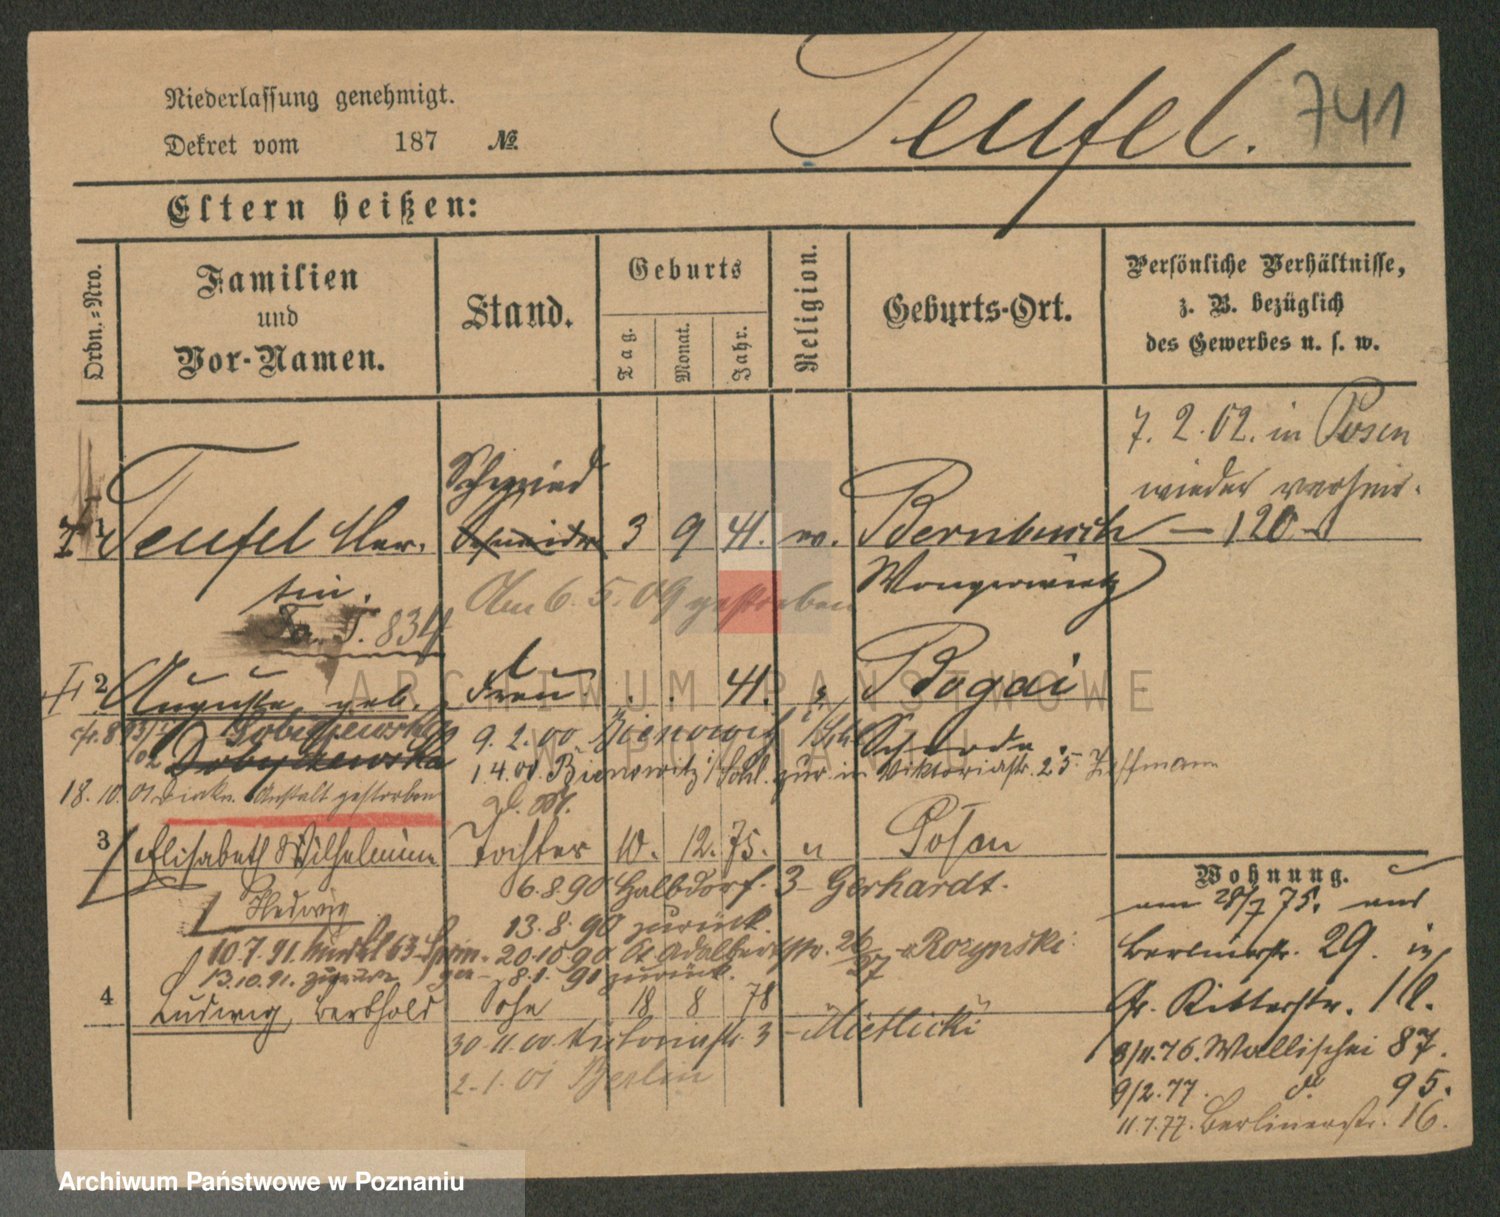 Niederlassung genehmigt.
Dekret vom 187 №
Teufel. 741
Eltern heißen:
Ordn.-Nro.
Familien
und
Vor-Namen.
Stand.
Geburts
Tag.
Monat.
Jahr.
Religion.
Geburts-Ort.
Persönliche Verhältnisse,
z. B. bezüglich
des Gewerbes u. s. w.
7. 2. 02. in Posen
wieder verheir.
Schmied
1 Teufel Mar- Schneider 3 9 41. ev. Bernbusch — 120
tin. Wongrowietz
Am 6. 5. 09 gestorben
Fa. T. 834
2 Auguste geb. Frau . . 41. Bogdi
Dobyszewska 9. 2. 00 Bienowitz Schroda
Dobyszewska 1. 4. 00. Bienowitz zur in Viktoriastr. 25 Hoffmann
18. 10. 01. Diakn. Anstalt gestorben
3 Elisabeth Wilhelmine Tochter 10. 12. 75. " Posen
Hedwig
6. 8. 90 Halbdorf. 3 Gerhardt.
13. 8. 90 zurück.
10. 7. 91. 63 20. 10. 90 St Adalbertstr. 26/27 Rozynski
13. 10. 91. zurück 8. 1. 91 zurück.
4 Ludwig, Berthold Sohn 18 8 78
30. 11. 00 Victoriastr. 3 - Mietlicki
2. 1. 01 Berlin
Wohnung.
am 28/7 75. aus
Berlinerstr. 29. in
Gr. Ritterstr. 10.
8/11. 76. Wallischei 87.
9/2. 77. do 95.
11. 7. 77. Berlinerstr. 16.
ARCHIWUM PAŃSTWOWE
W POZNANIU
Archiwum Państwowe w Poznaniu